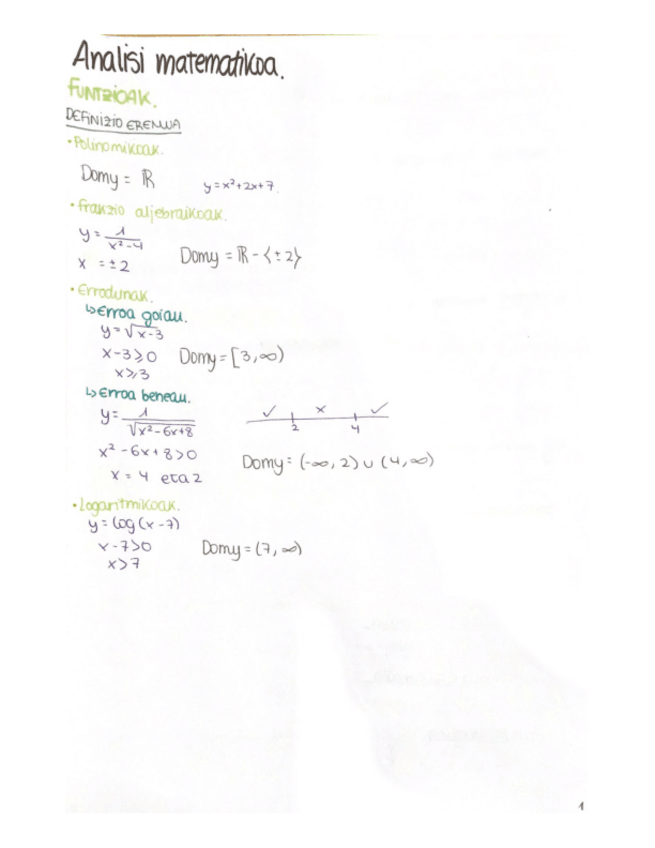 Analisi matematikoa.
FUNTZIOAK.
DEFINIZIO EREMUA
• Polinomikoak.
Domy = ℝ y = x²+2x+7.
• Frakzio aljebraikoak.
y = 1/(x²-4)
x = ±2 Domy = ℝ - {±2}
• Errodunak.
↳ Erroa goian.
y = √(x-3)
x-3 ⩾ 0 Domy = [3, ∞)
x ⩾ 3
↳ Erroa behean.
y = 1/√(x²-6x+8) ✓ 2 x 4 ✓
x² - 6x + 8 > 0
Domy = (-∞, 2) ∪ (4, ∞)
x = 4 eta 2
• Logaritmikoak.
y = log (x-7)
x-7 > 0 Domy = (7, ∞)
x > 7
1